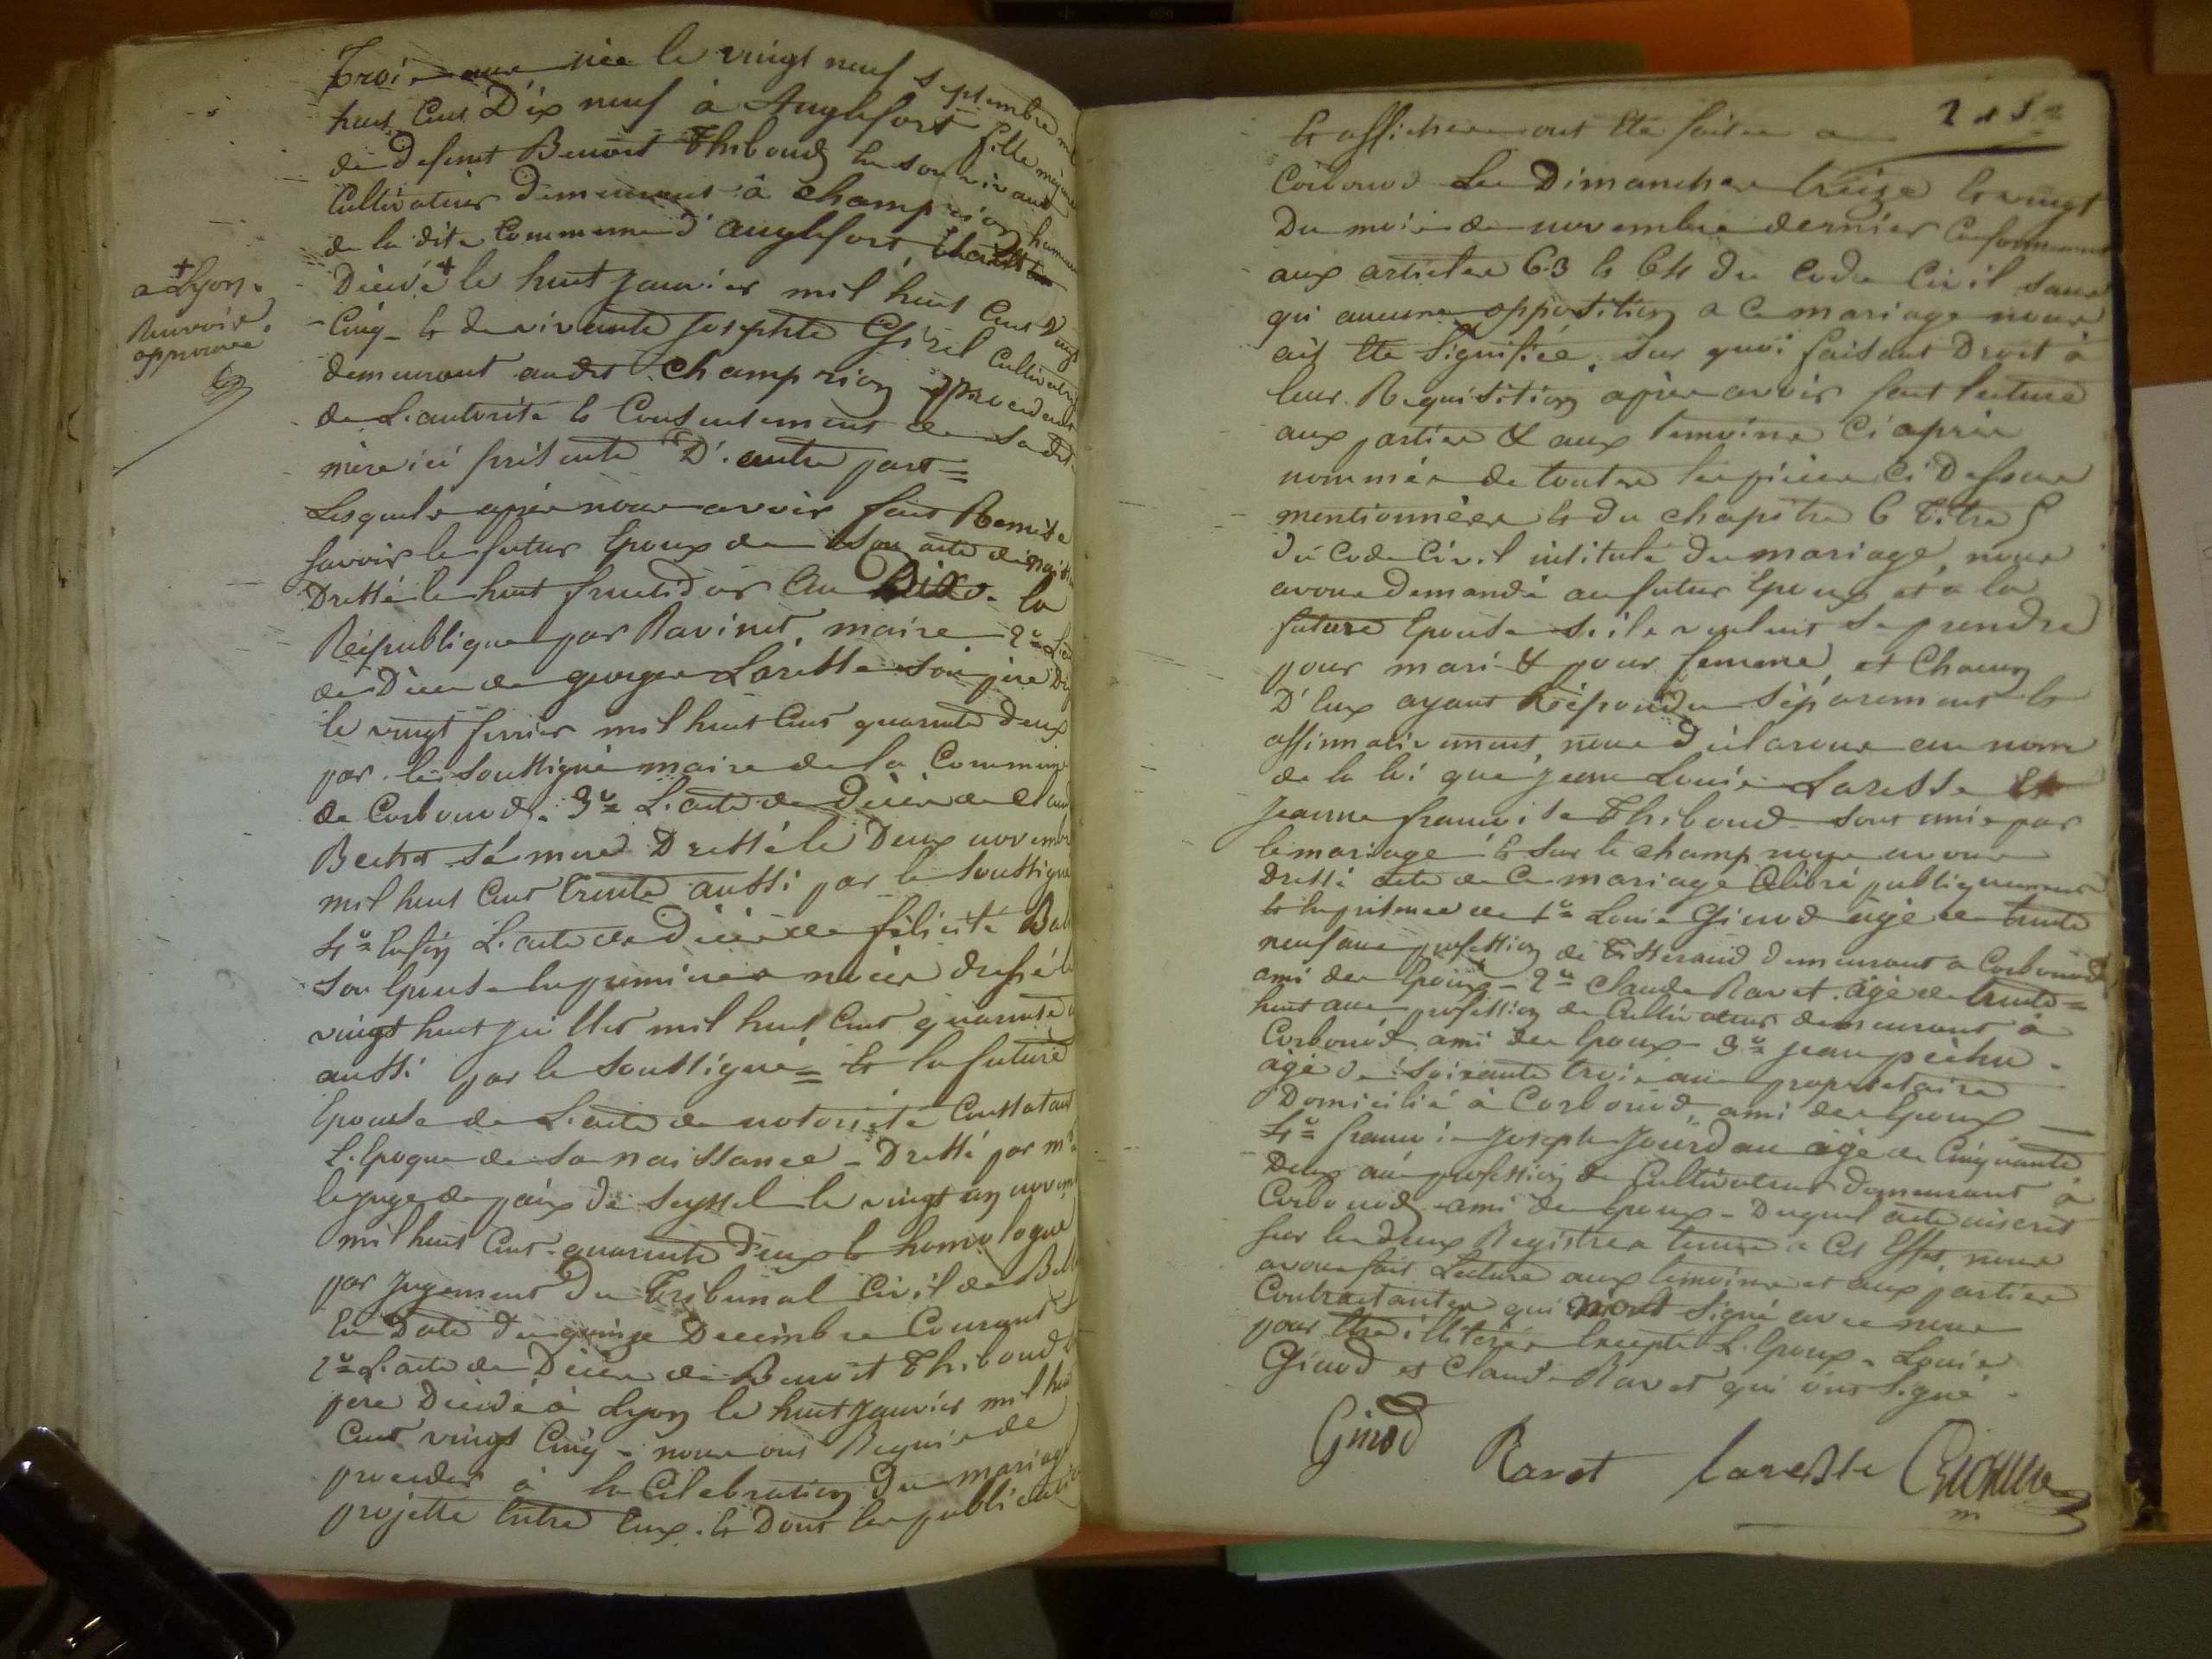 Trois ans née le vingt neuf septembre mil
huit Cent Dix neuf à Anglefort fille majeure
de defunt Benoit Thiboud en son vivant
Cultivateur demeurant à champrion hameau
de la dite Commune d'anglefort
Décédé + le huit janvier mil huit Cent Vingt
Cinq et de vivante Josephte Girel Cultivatrice
demeurant audit Champrion procedant
de L'autorité et Consentement de Sa dite
mère ici présente D'autre part =
+
a Lyon.
Renvoi
approuvé
Lesquels après nous avoir fait Remise
Savoir le futur Epoux de Son acte de naiss
Dressé le huit fructidor an Dix de la
République par Ravinet, maire 2º L'acte
de Décès de george Laresse Son père
le vingt fevrier mil huit Cent quarante deux
par le Soussigné maire de la Commune
de Corbonod. 3º L'acte de Décès de Claud
Sa mère Dressé le Deux novembre
mil huit Cent trente aussi par le Soussigné
4º Enfin L'acte de Décès de félicité
Son Epouse en premières noces dressé le
vingt huit juillet mil huit Cent quarante
aussi par le Soussigné = Et la future
Epouse de L'acte de notoriété Constatant
L'Epoque de Sa naissance - Dressé par mr
le juge de paix de Seyssel le vingt un novem
mil huit Cent quarante deux et homologué
par Jugement du Tribunal Civil de Bell
En Date du quinze Decembre Courant
2º L'acte de Décès de Benoit Thiboud
père Décédé à Lyon le huit Janvier mil huit
Cent vingt Cinq - nous ont Requis de
proceder à la Célébration du mariage
projetté Entre Eux. Et Dont les publications
Et affiches ont Eté faites a
Corbonod Les Dimanches treize Et vingt
Du mois de novembre dernier Conformement
aux articles 63 Et 64 du Code Civil sans
qu'aucune opposition a Ce mariage nous
ait Eté Signifiée. Sur quoi faisant Droit à
leur Requisition après avoir fait lecture
aux parties & aux témoins Ci après
nommés de toutes les pièces Ci Dessus
mentionnées Et du chapitre 6 titre 5
du Code Civil intitulé du mariage, nous
avons demandé au futur Epoux et à la
future Epouse S'ils veulent Se prendre
pour mari & pour femme, et Chacun
D'Eux ayant Répondu Séparement Et
affirmativement, nous Déclarons au nom
de la loi que Jean Louis Laresse Et
Jeanne françoise Thiboud Sont unis par
le mariage Et Sur le champ nous avons
dressé acte de Ce mariage Célébré publiquement
En présence de 1º Louis Ginod âgé de trente
neuf ans profession de Tisserand demeurant a Corbonod
ami des Epoux - 2º Claude Ravet âgé de trente =
huit ans profession de Cultivateur demeurant à
Corbonod ami des Epoux - 3º jean pochu
agé de Soixante trois ans proprietaire
Domicilié à Corbonod, ami des Epoux
4º françois Joseph Jourdan agé de Cinquante
Deux ans profession de Cultivateur demeurant à
Corbonod ami des Epoux - Duquel acte inscrit
Sur les deux Registres tenus a Cet Effet, nous
avons fait Lecture aux témoins et aux parties
Contractantes qui n'ont Signé avec nous
pour Etre illiterés Excepté L'Epoux - Louis
Ginod et Claude Ravet qui ont Signé.
Ginod Ravet laresse